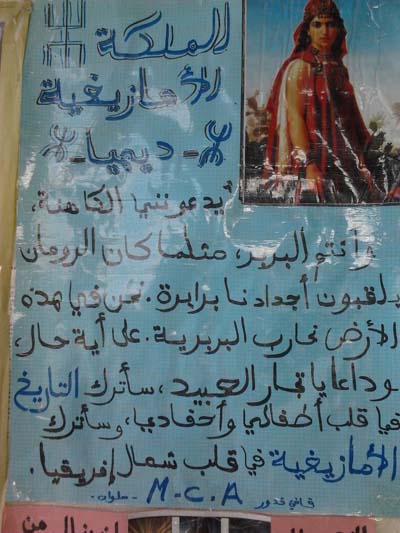 الملكة
الأمازيغية
ⵣ - ديهيا - ⵣ
أيدعونني الكاهنة،
وأنتم البربر، مثلما كان الرومان
يلقبون أجدادنا برابرة. نحن في هذه
الأرض نحارب البربرية. على أية حال،
وداعا يا تجار العبيد، سأترك التاريخ
في قلب أطفالي وأحفادي، وسأترك
الأمازيغية في قلب شمال إفريقيا.
M-C-A
قاضي قدور